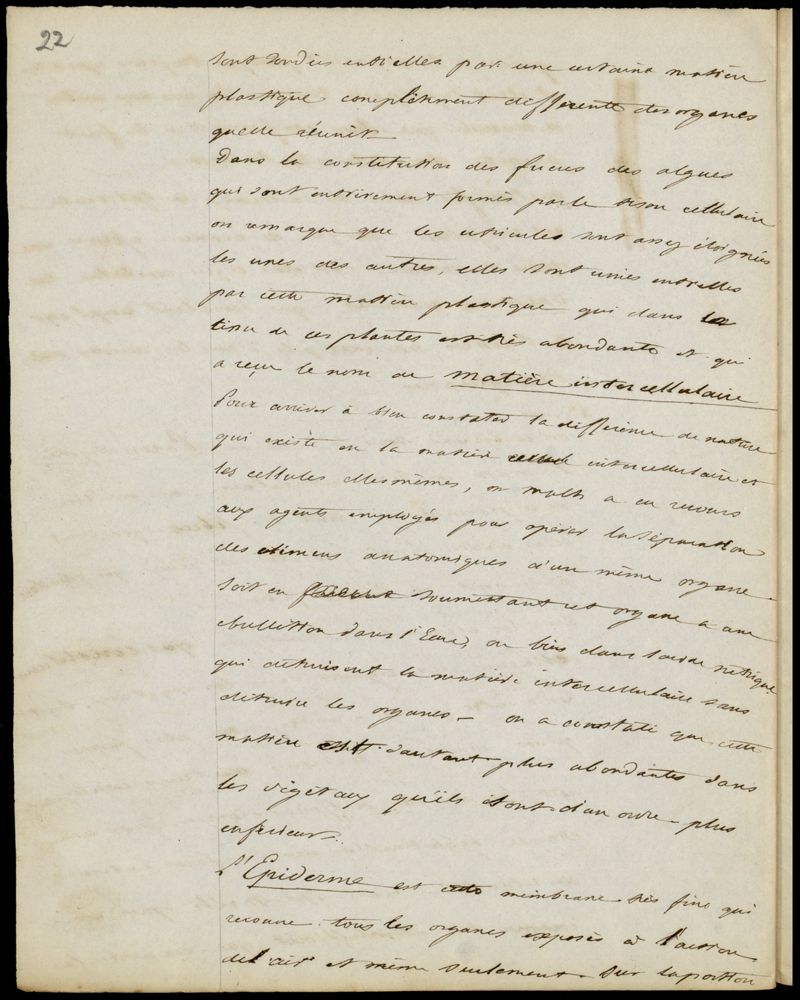 22
sont soudées entr'elles par une certaine matière
plastique complètement différente des organes
quelle réunit
Dans la constitution des fucus des algues
qui sont entièrement formés par le tissu cellulaire
on remarque que les utricules sont assez éloignées
les unes des autres, elles sont unies entr'elles
par cette matière plastique qui dans le
tissu de ces plantes est très abondante et qui
a reçu le nom de matière intercellulaire
Pour arriver à bien constater la différence de nature
qui existe en la matière intercellulaire et
les cellules elles mêmes, on a eu recours
aux agents employés pour opérer la séparation
des élimens anatomiques d'un même organe
soit en soumettant cet organe a une
ebullition dans l'Eau, ou bien dans l'acide nitrique
qui detruisent la matière intercellulaire sans
détruire les organes – on a constaté que cette
matière est d'autant plus abondante dans
les végétaux qu'ils sont d'un ordre plus
inférieur.
L'Epiderme est membrane très fine qui
recouvre tous les organes exposés à l'action
de l'air et même seulement sur la portion